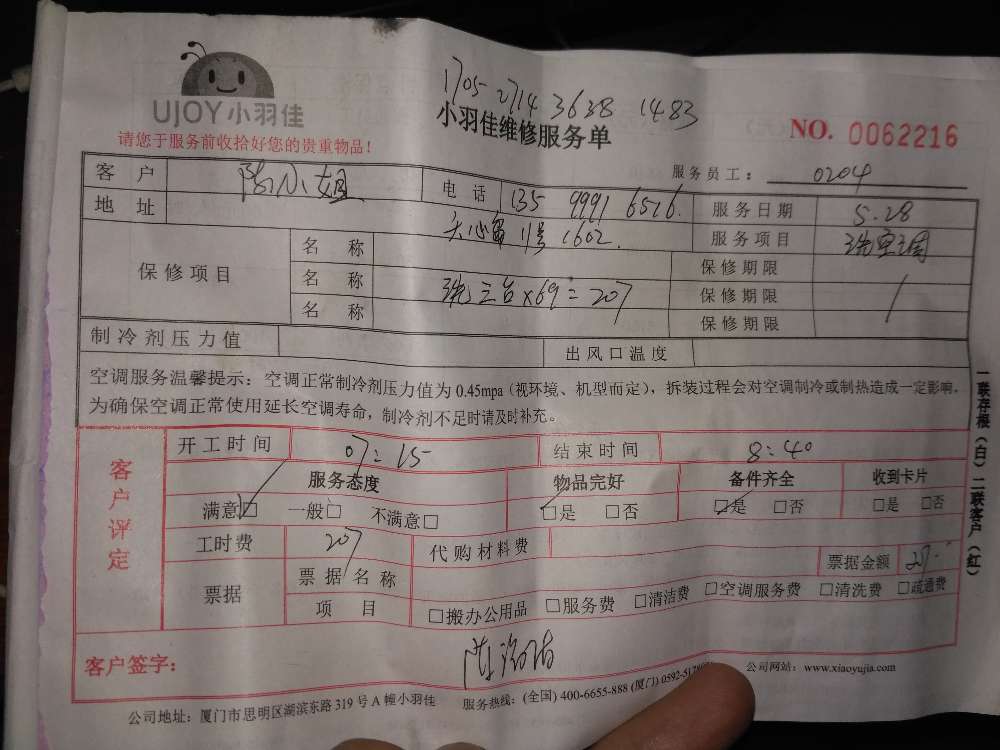 UJOY小羽佳
1705 2714 3638 1483
小羽佳维修服务单
NO. 0062216
请您于服务前收拾好您的贵重物品!
服务员工: 0204
客户 小姐 电话 135 9991 6516 服务日期 5.28
地址 11号1602 服务项目 洗空调
保修项目 名称 保修期限
名称 洗三台×69=207 保修期限
名称 保修期限
制冷剂压力值 出风口温度
空调服务温馨提示:空调正常制冷剂压力值为0.45mpa(视环境、机型而定),拆装过程会对空调制冷或制热造成一定影响,
为确保空调正常使用延长空调寿命,制冷剂不足时请及时补充。
客户评定
开工时间 07:15 结束时间 8:40
服务态度 物品完好 备件齐全 收到卡片
满意□ 一般□ 不满意□ □是 □否 □是 □否 □是 □否
工时费 207 代购材料费
票据 票据名称 票据金额
项目 □搬办公用品 □服务费 □清洁费 □空调服务费 □清洗费 □疏通费
客户签字:
公司地址:厦门市思明区湖滨东路319号A幢小羽佳
服务热线:(全国)400-6655-888 (厦门)0592-5178
公司网站:www.xiaoyujia.com
一联存根(白)二联客户(红)